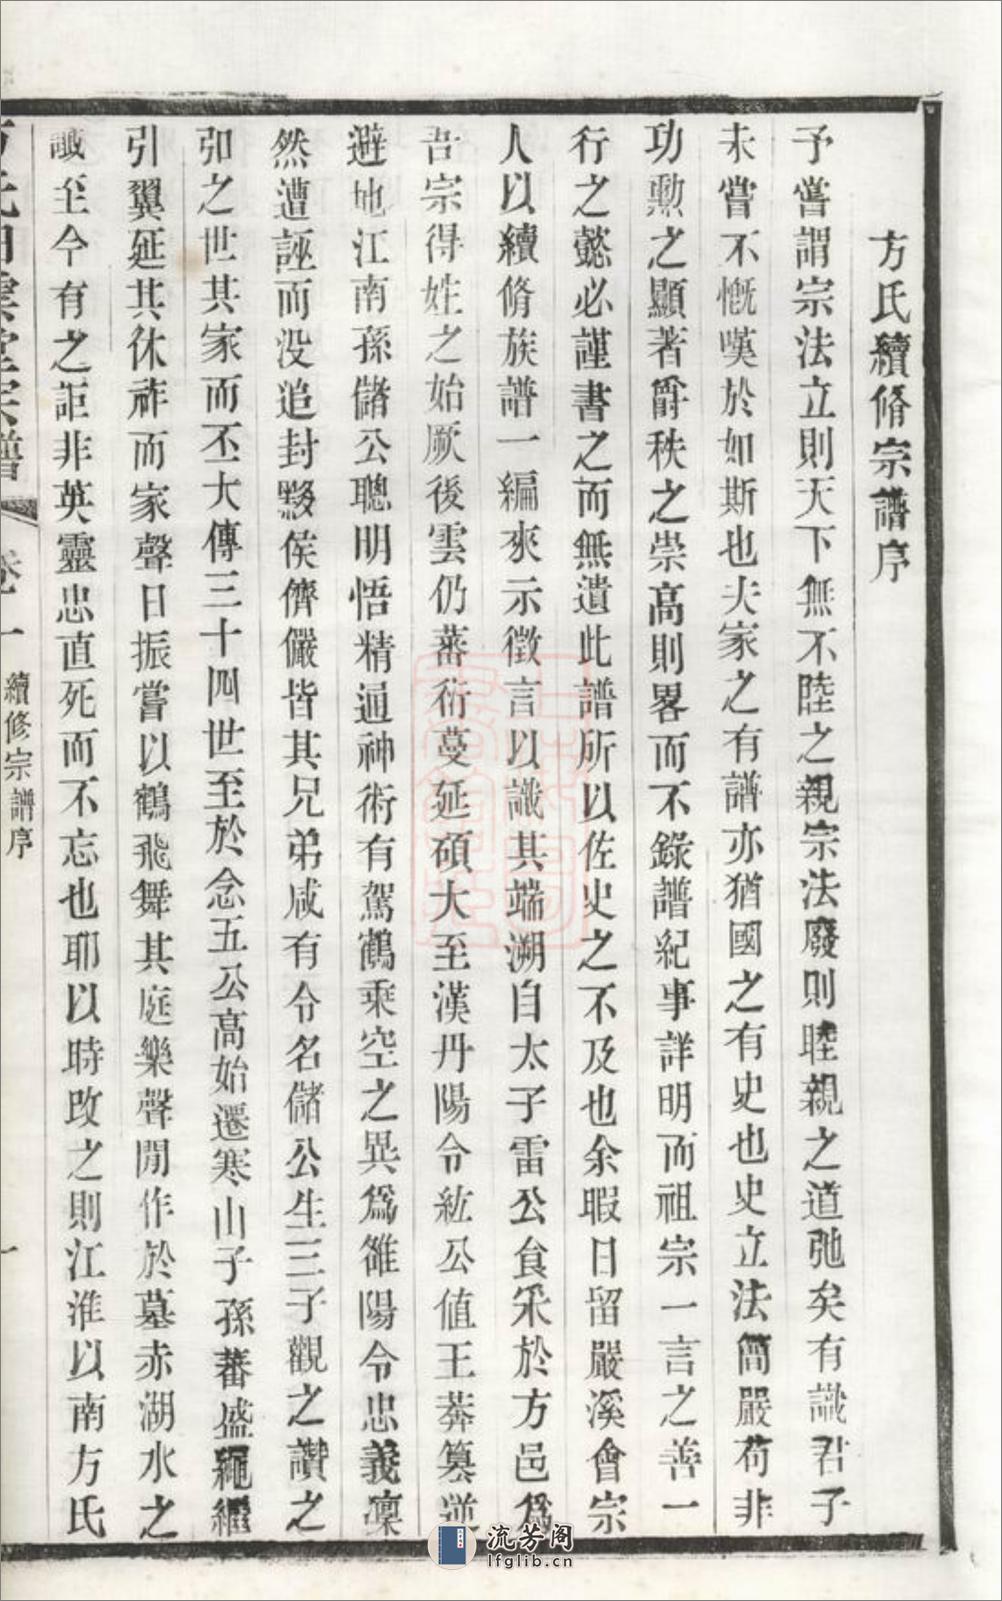 方氏續脩宗譜序
予嘗謂宗法立則天下無不陸之親宗法廢則睦親之道弛矣有識君子
未嘗不慨嘆於如斯也夫家之有譜亦猶國之有史也史立法簡嚴苟非
功勲之顯著爵秩之崇高則畧而不錄譜紀事詳明而祖宗一言之善一
行之懿必謹書之而無遺此譜所以佐史之不及也余暇日留嚴溪會宗
人以續脩族譜一編來示徵言以識其端溯自太子雷公食采於方邑爲
吾宗得姓之始厥後雲仍蕃衍蔓延碩大至漢丹陽令紘公值王莽篡逆
避地江南孫儲公聰明悟精通神術有駕鶴乘空之異爲雒陽令忠義凜
然遭誣而没追封黟侯儕儼皆其兄弟咸有令名儲公生三子觀之讚之
弘之世其家而丕大傳三十四世至於念五公高始遷寒山子孫蕃盛繩繼
引翼延其休祚而家聲日振嘗以鶴飛舞其庭樂聲閒作於墓赤湖水之
讖至今有之詎非英靈忠直死而不忘也耶以時攺之則江淮以南方氏
續修宗譜序
一
流芳阁
lfglib.cn